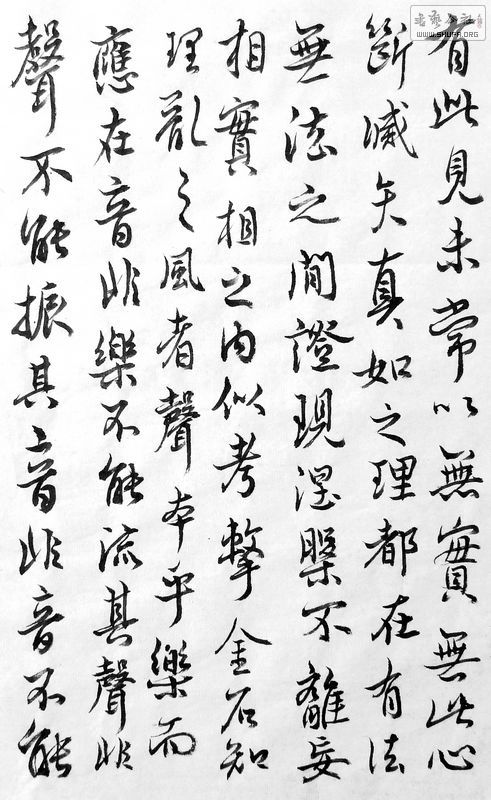 有此見未常以無實無此心
斷滅失真如之理都在有法
無法之間證現涅槃不離妄
相實相之内似考擊金石知
理亂之風者聲本乎樂而
應在音非樂不能流其聲非
聲不能振其音非音不能
WWW.SHUFA.ORG